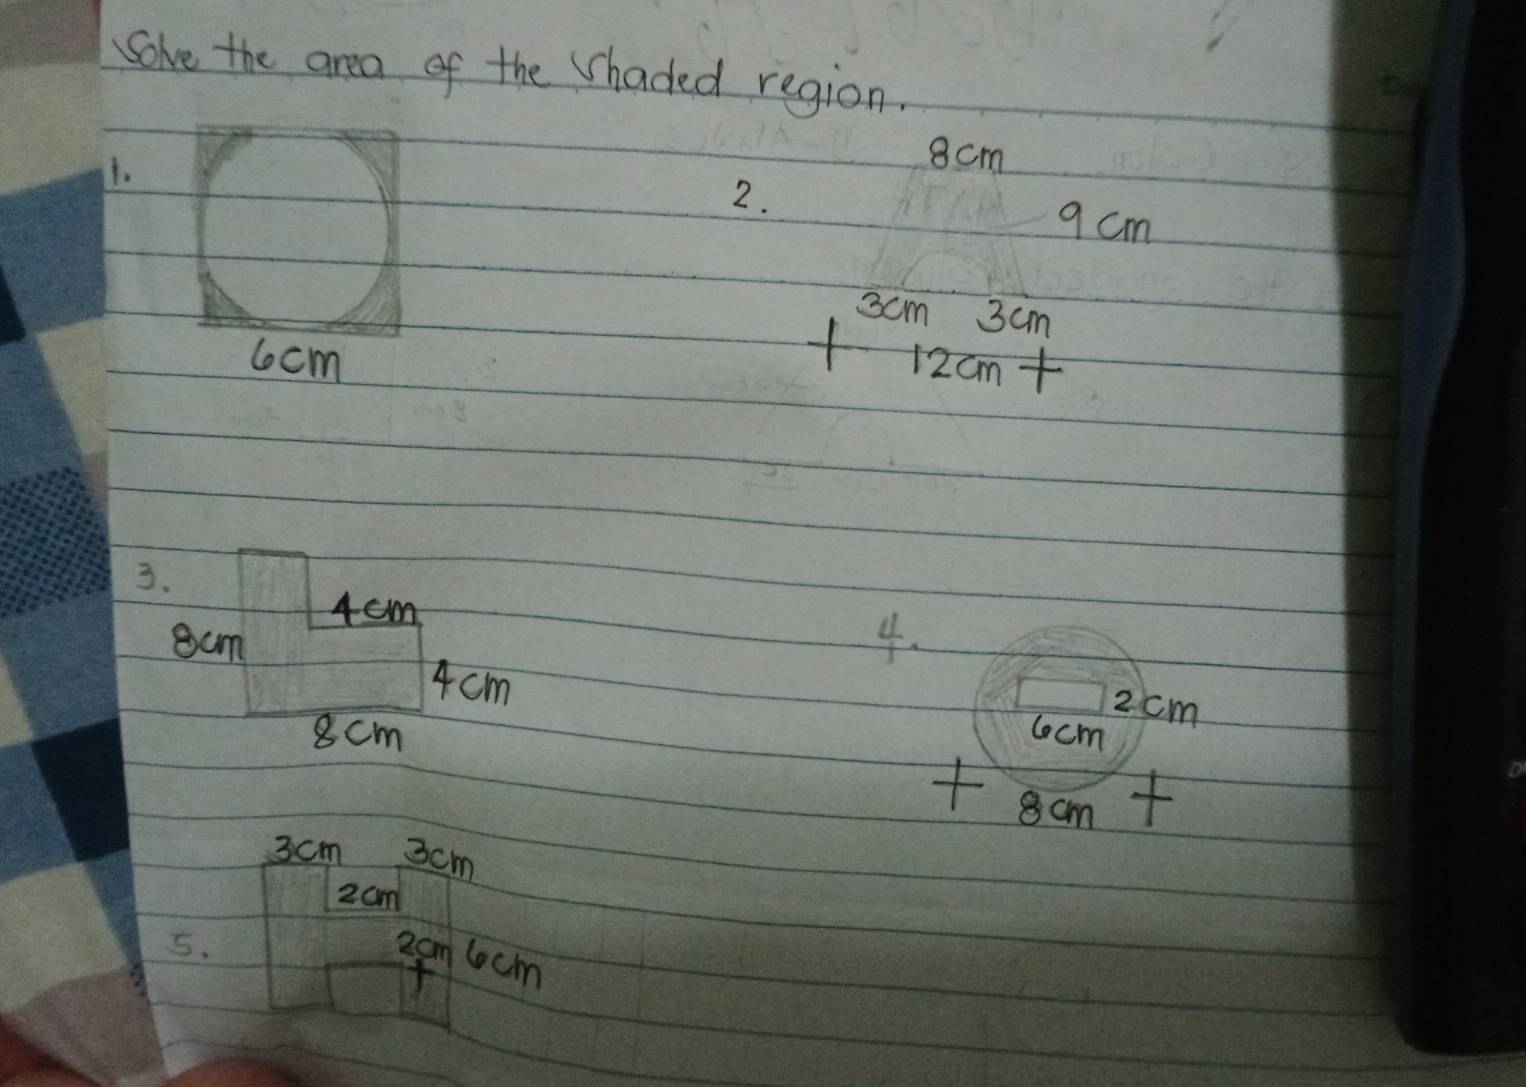 Solve the area of the shaded region.
1.
6cm
2.
8cm
9cm
3cm 3cm
+ 12cm +
3.
4cm
8cm
4cm
8cm
4.
2cm
6cm
+ 8cm +
5.
3cm 3cm
2cm
2cm 6cm
+